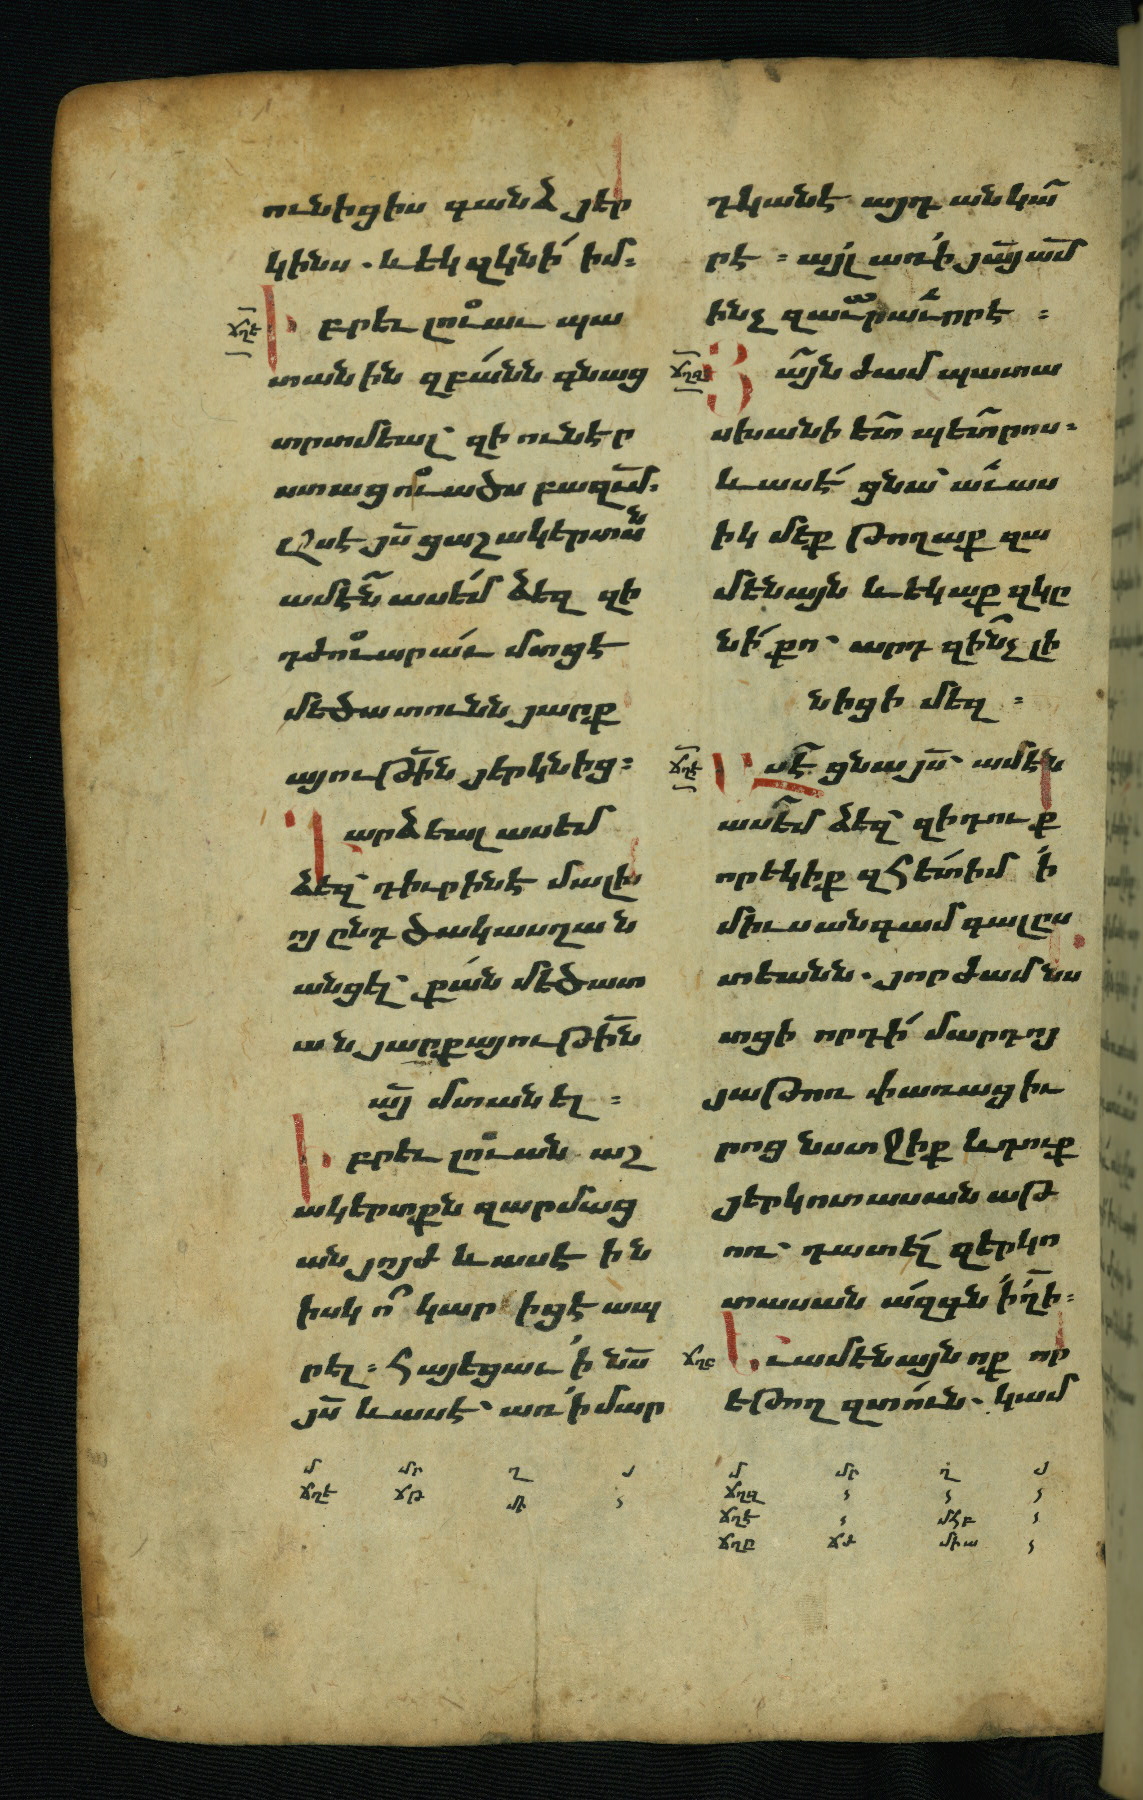 ունիցիս գանձ յեր
կինս . և եկ զկնի իմ .
ճղե Իբրեւ լուաւ պա
տանին զբանն գնաց
տրտմեալ՝ զի ունէր
ստացուածս բազում .
Ասէ յս ցաշակերտսն
ամէն ասեմ ձեզ զի
դժուարաւ մտցէ
մեծատունն յարք
այութին յերկնից :
Դարձեալ ասեմ
ձեզ՝ դիւրինէ մալխ
ոյ ընդ ծակ ասղան
անցել՝ քան մեծատ
ան յարքայութին
այ մտանել :
Իբրեւ լուան աշ
ակերտքն զարմաց
ան յոյժ և ասէ ին
իսկ ո կար իցէ ապ
րել : Հայեցաւ ի նս
յս և ասէ՝ առ ի մար
դկանէ այդ անկա
րէ : այլ առ ի յայ ամ
ինչ զաւրաւորէ :
ճղզ Յայնժամ պատա
սխանի ետ պետրոս .
և ասէ ցնա՝ աւաս
իկ մեք թողաք զա
մենայն և եկաք զկը
նի քո՝ արդ զինչ լի
նիցի մեզ :
ճղէ Ասէ ցնա յս՝ ամէն
ասեմ ձեզ՝ զի դուք
որ եկիք զհետ իմ ի
միւսանգամ գալըս
տեանն . յորժամ նս
տցի որդի մարդոյ
յաթոռ փառաց իւ
րոց նստջիք և դուք
յերկոտասան աթ
ոռ՝ դատել զերկո
տասան ազգն իղի :
ճղը Եւ ամենայն ոք որ
եթող զտուն . կամ
մ մր ղ յ
ճղե ճթ մի
մ մր ղ յ
ճղզ
ճղէ մհբ
ճղը ճժ միա